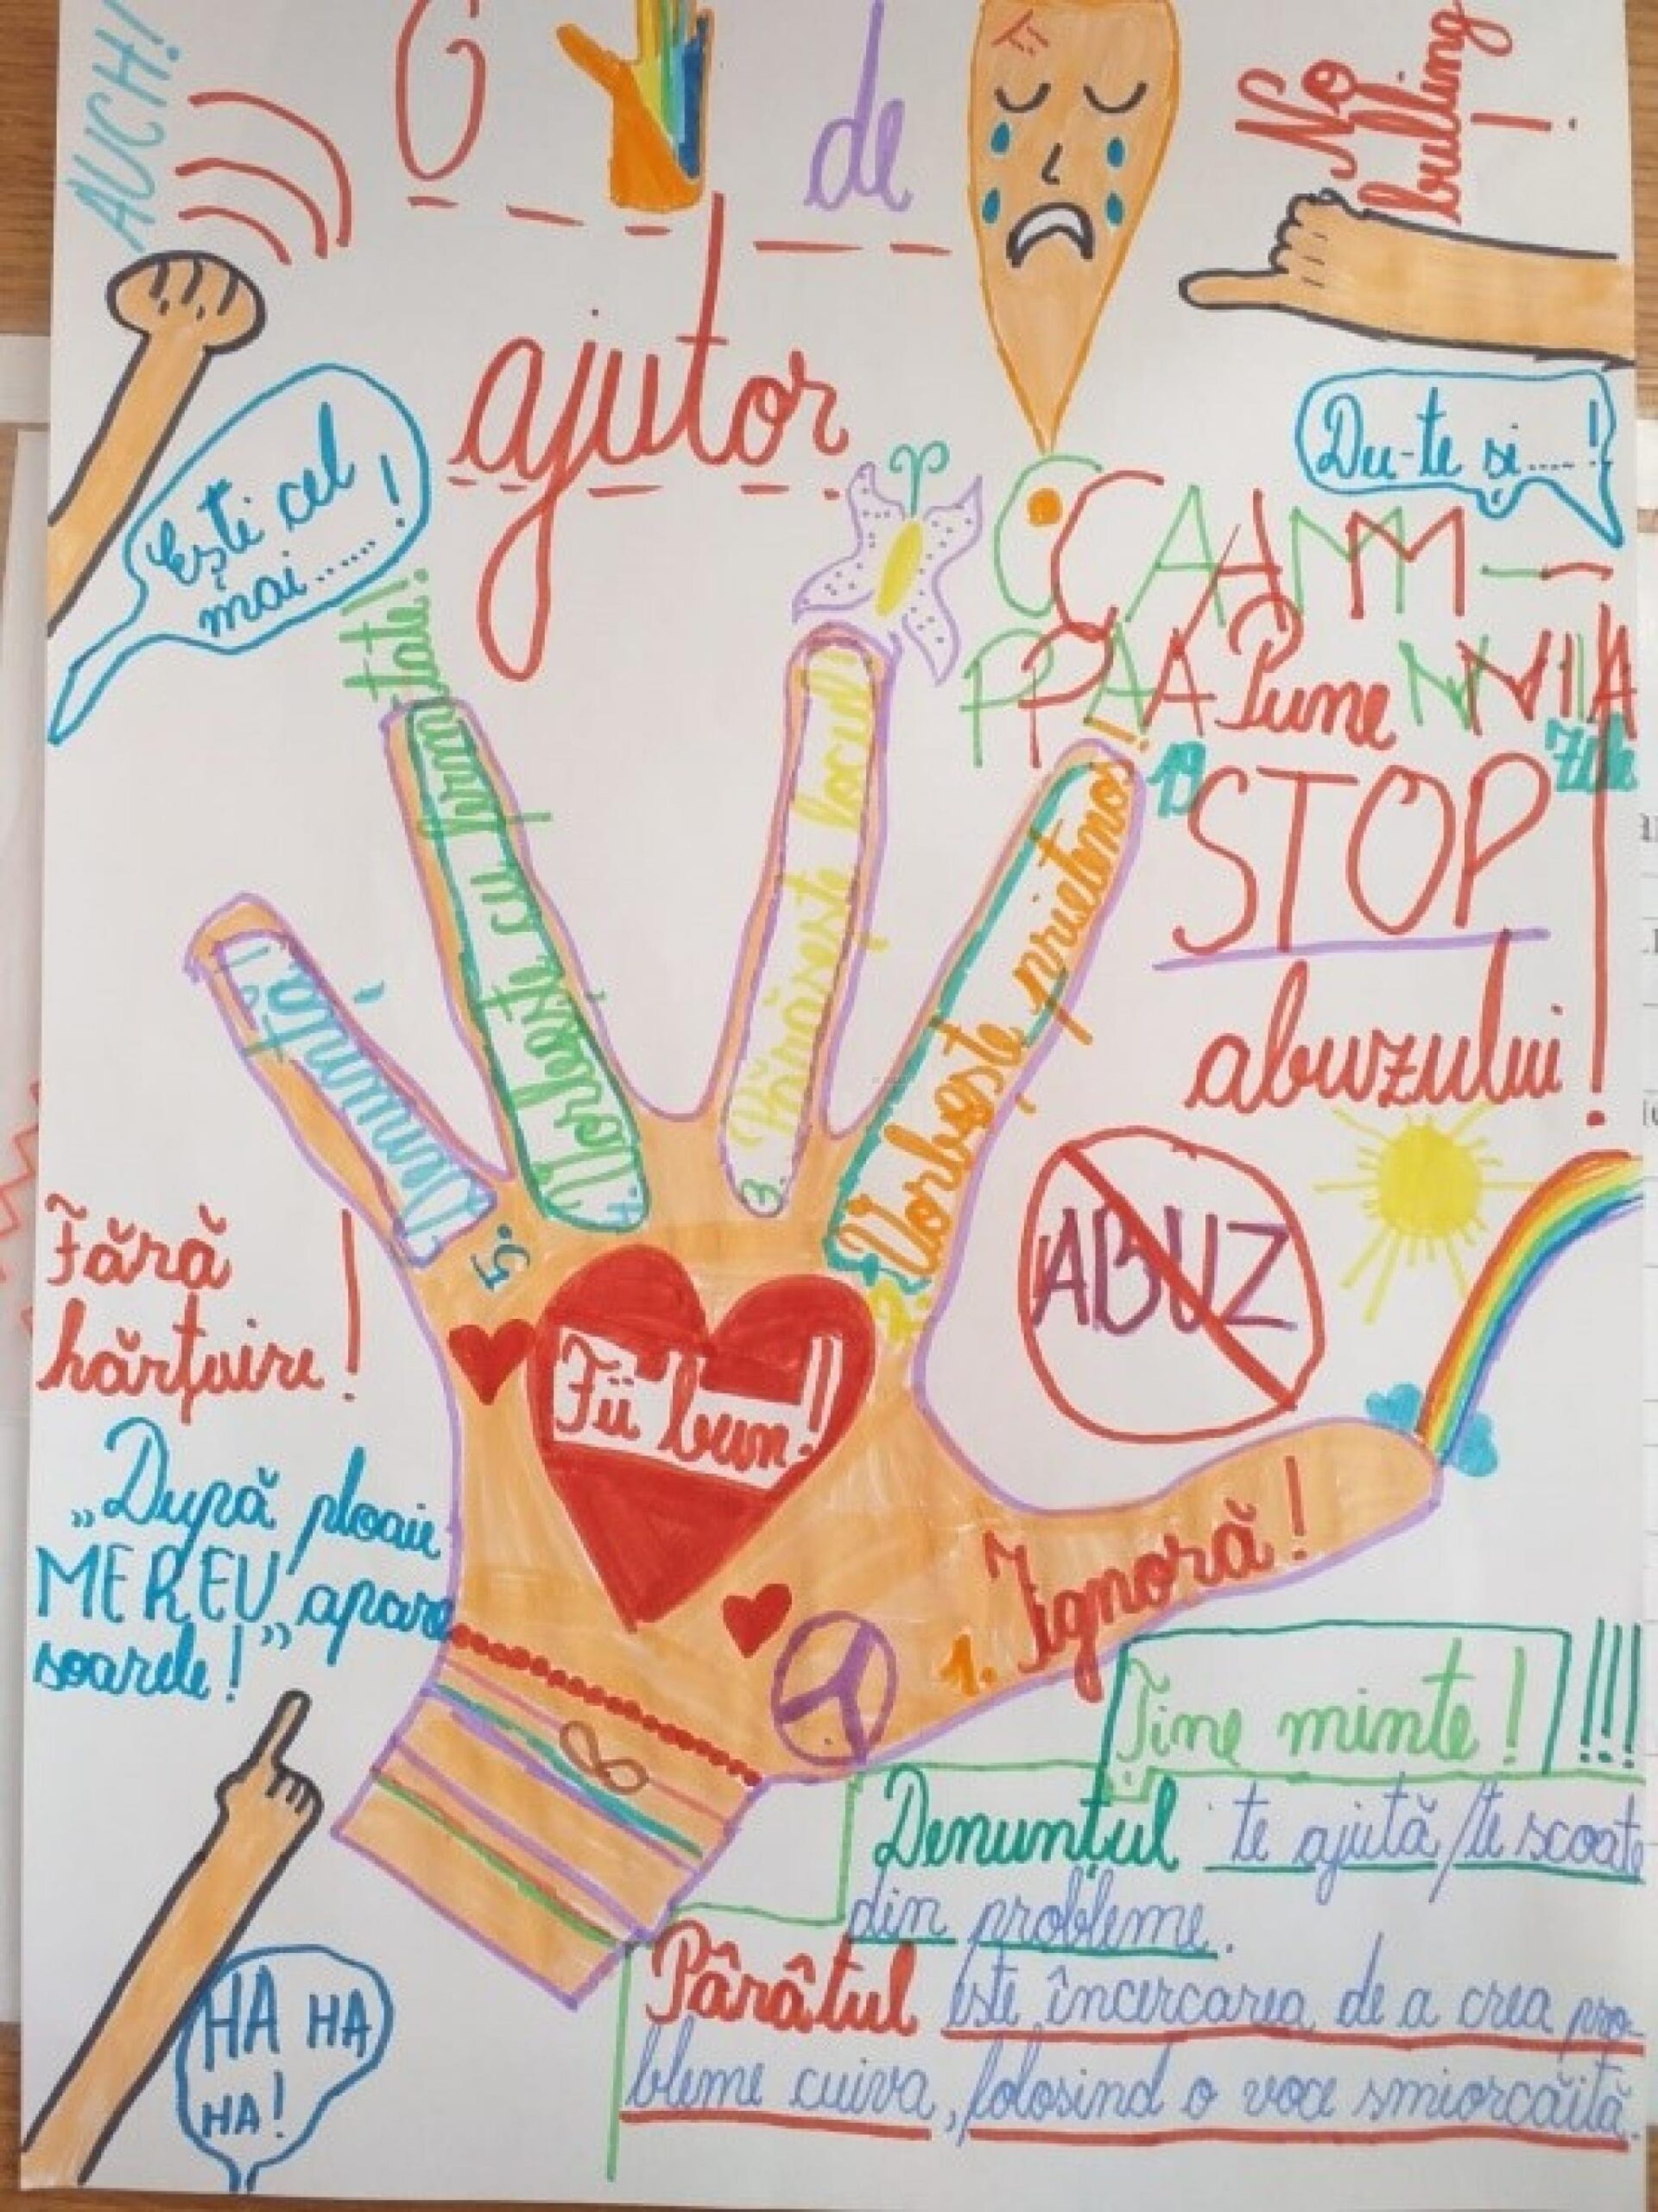 AUCH!
de
ajutor
No
bulling!
Ești cel
mai......!
Du-te și.....!
CAM-
PANIA
19
Pune
STOP
abuzului!
ABUZ
1. Ignoră!
2. Vorbește prietenos!
3. Părăsește locul!
4. Vorbește cu fermi-
tate!
5. Denunță!
Fii bun!!
Fără
hărțuire!
„După ploaie
MEREU apare
soarele!”
Ține minte! !!!
Denunțul te ajută/te scoate
din probleme.
Pârâtul este încercarea de a crea pro-
bleme cuiva, folosind o voce smiorcăită.
HA HA
HA!